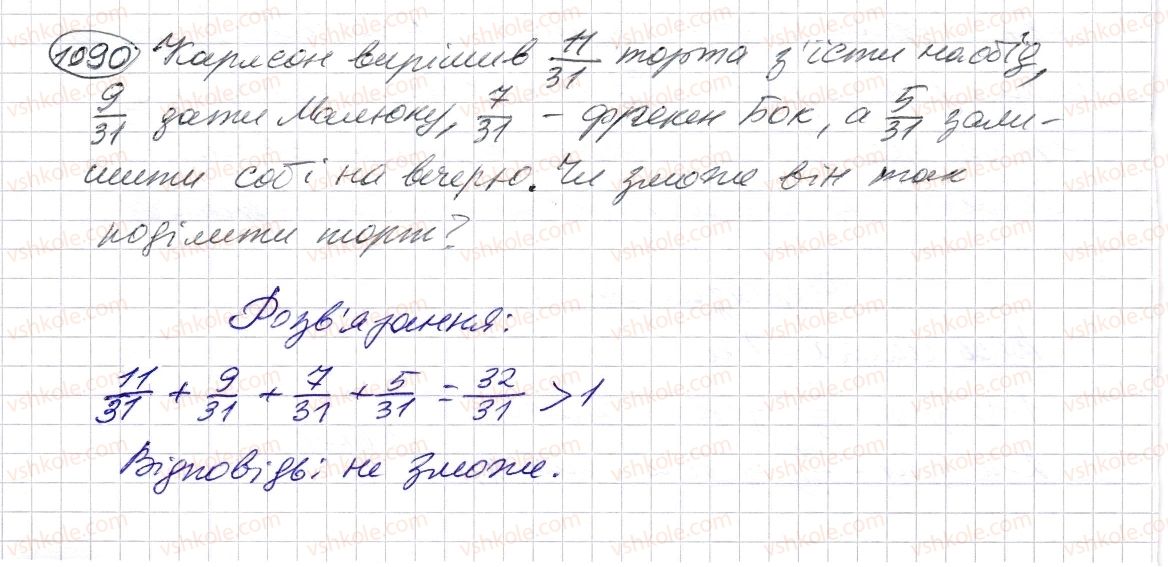 1090. Карлсон вирішив 11/31 торта з'їсти на обід,
9/31 дати Малюку, 7/31 – фрекен Бок, а 5/31 зали-
шити собі на вечерю. Чи зможе він так
поділити торт?
Розв'язання:
11/31 + 9/31 + 7/31 + 5/31 = 32/31 > 1
Відповідь: не зможе.